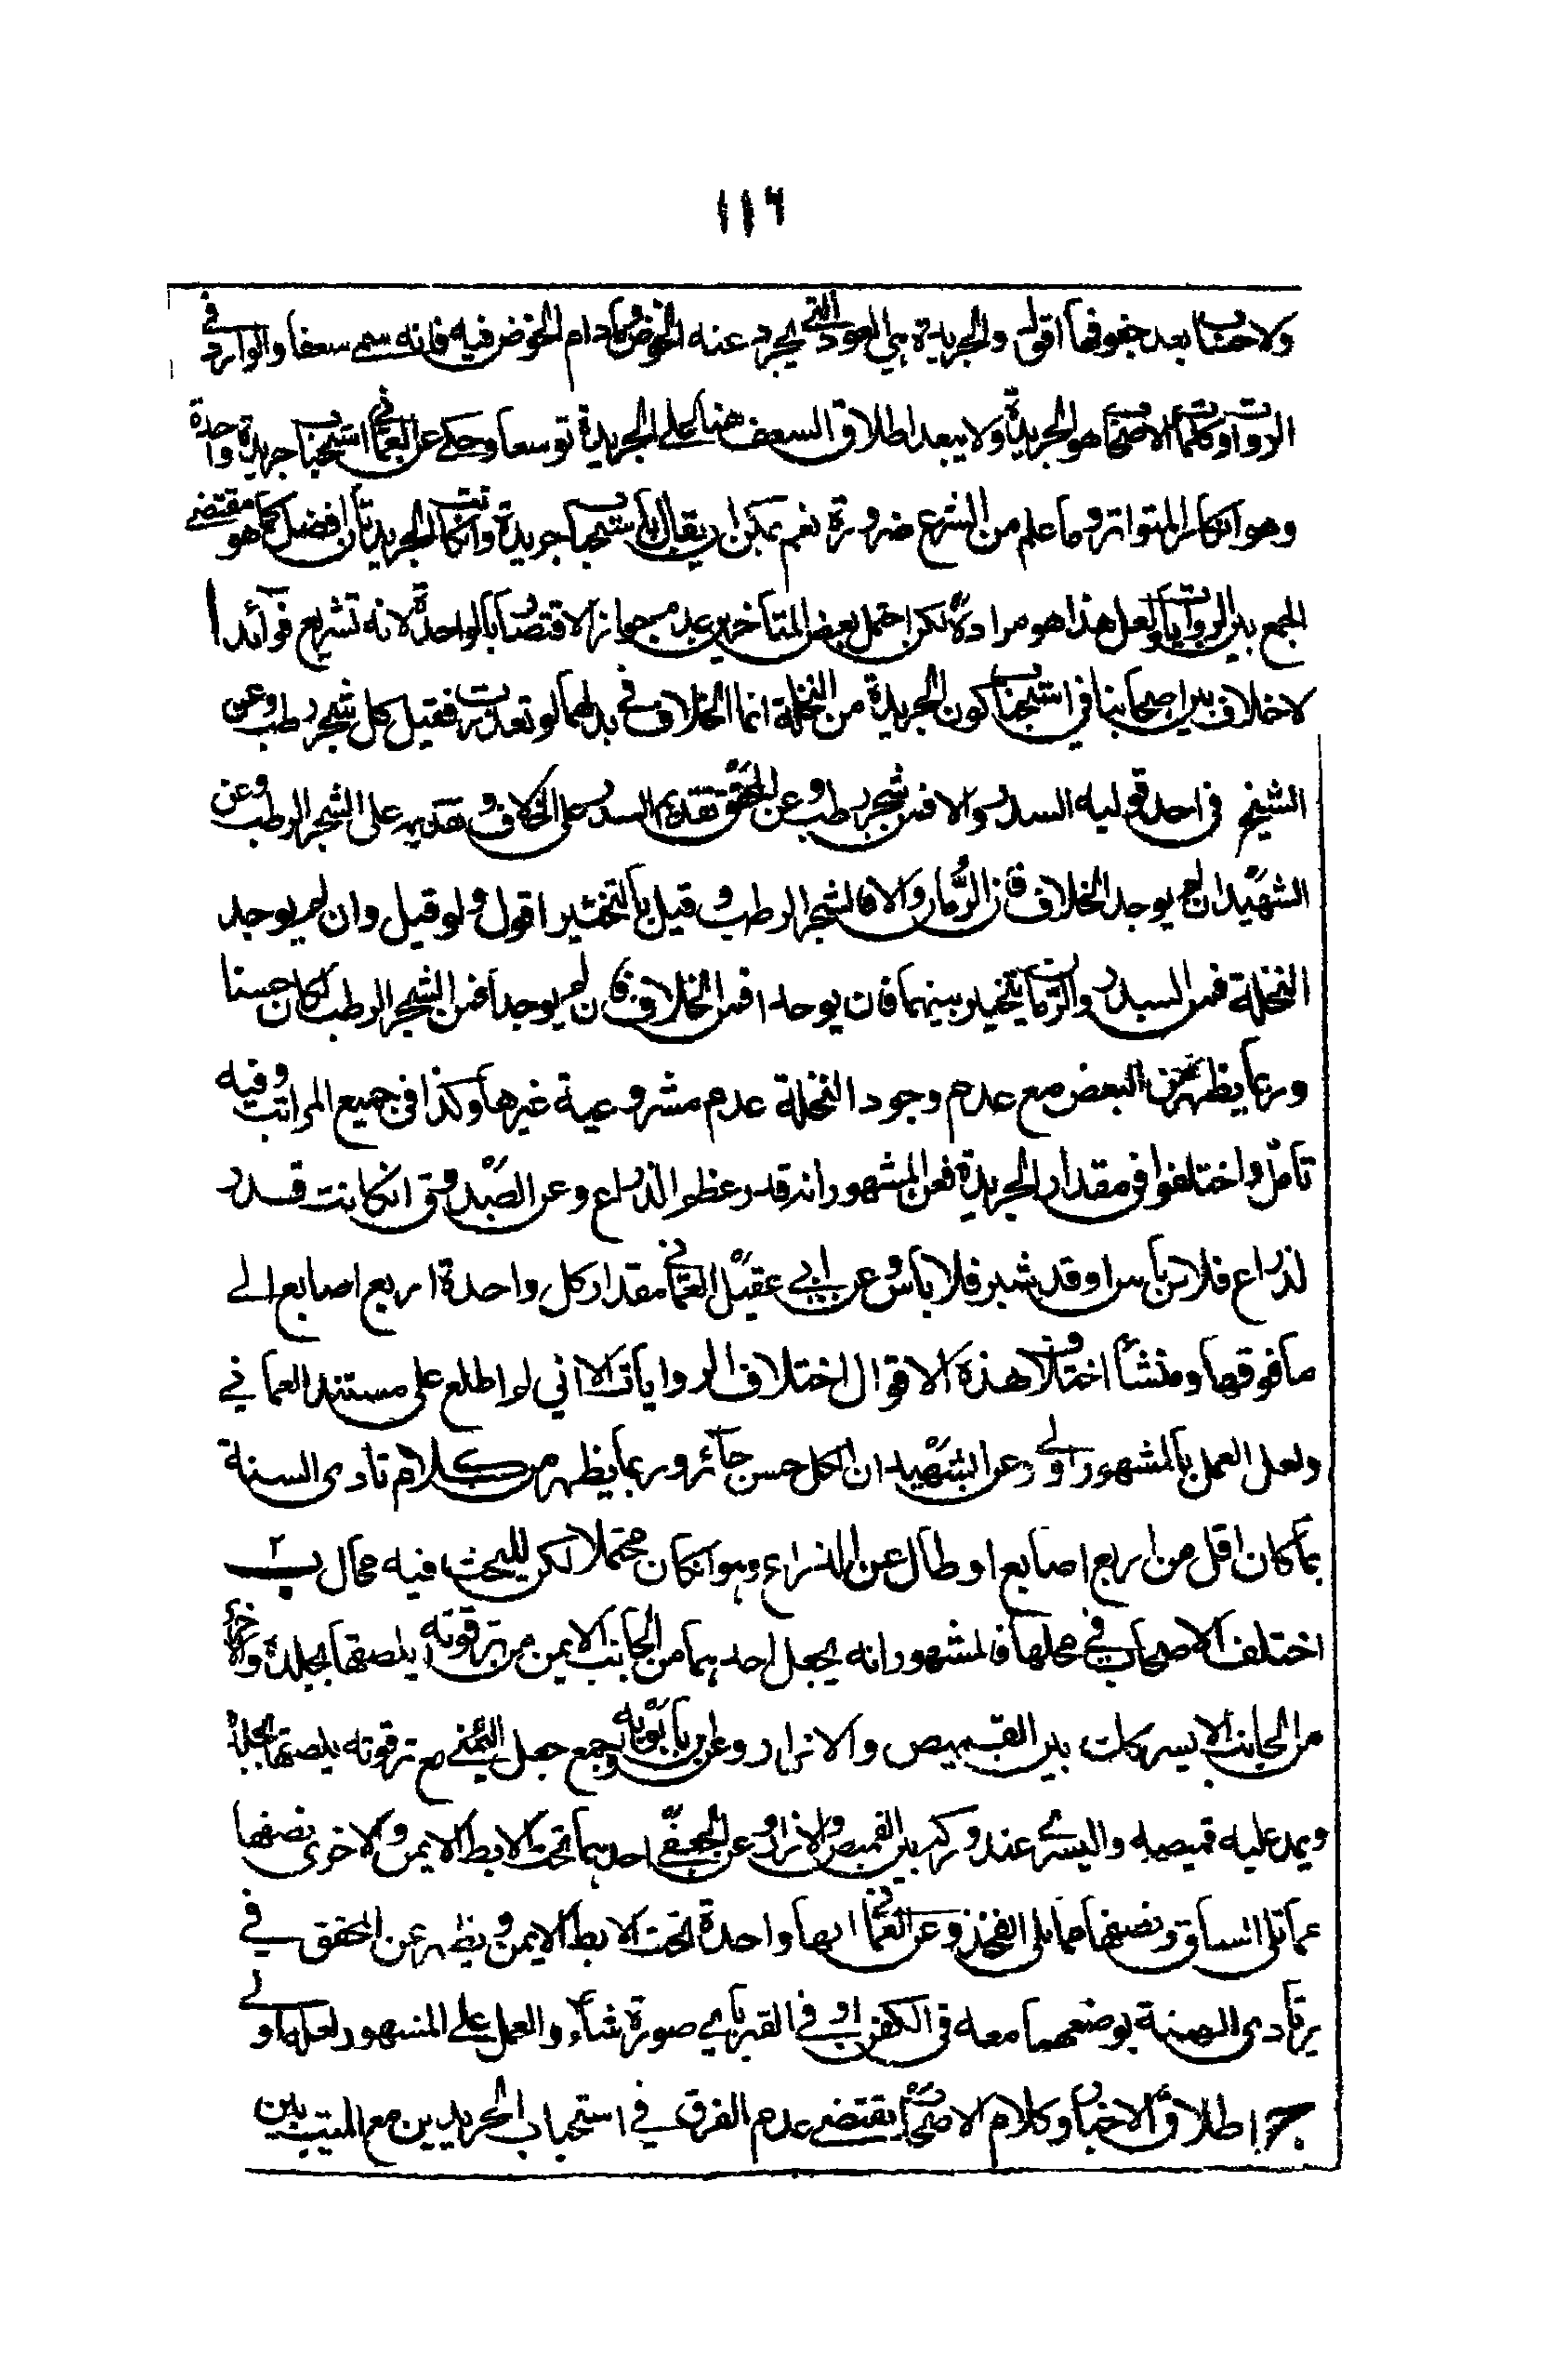 ١١٦
ولا حساب بعد جفوفها اقول والجريدة هي العود التي يجرد عنه الخوص وما دام الخوص فيه فانه سمى سعفا والوارد في
الروايات وكلمات الاصحاب هو الجريدة ولا يبعد اطلاق السعف هنا على الجريدة توسعا وحكى عن العماني استحباب جريدة واحدة
وهو انكار المتواتر وما علم من الشرع ضرورة نعم يمكن ان يقال باستحباب جريدة وان كانت الجريدتان افضل كما هو مقتضى
الجمع بين الروايات ولعل هذا هو مراده لكن احتمل بعض المتأخرين عدم جواز الاقتصار بالواحدة لانه تشريع فوائد ا
لا خلاف بين اصحابنا في استحباب كون الجريدة من النخلة انما الخلاف في بدلها لو تعذرت فقيل كل شجر رطب وعن
الشيخ في احد قوليه السدر والا فمن شجر رطب وعن المحقق تقديم السدر على الخلاف وتقديمه على الشجر الرطب وعن
الشهيد ان لم يوجد الخلاف فان الرمان والا فالشجر الرطب وقيل بالتخيير اقول ولو قيل وان لم يوجد
النخلة فمن السدر والرمان يتخير بينهما فان يوجدا فمن الخلاف فان لم يوجد فمن الشجر الرطب لكان حسنا
وربما يظهر من البعض مع عدم وجود النخلة عدم مشروعية غيرها وكذا في جميع المراتب وفيه
تامل واختلفوا في مقدار الجريدة فعن المشهور انه قدر عظم الذراع وعن الصدوق انكانت قدر
لذراع فلا باس او قد شبر فلا باس وعن ابي عقيل العماني مقدار كل واحدة اربع اصابع الى
ما فوقها ومنشأ اختلاف هذه الاقوال اختلاف الروايات الا اني لم اطلع على مستند العماني
ولعل العمل بالمشهور اولى وعن الشهيد ان الكل حسن جائز وربما يظهر من كلام تادى السنة
بما كان اقل من اربع اصابع او طال عن الذراع وهو انكان محتملا لكن للبحث فيه مجال ب
اختلف الاصحاب في محلها فالمشهور انه يجعل احدهما من الجانب الايمن من ترقوته يلصقها بجلده والاخرى
من الجانب الايسر كذلك بين القميص والازار وعن ابن بابويه وجمع جعل اليمنى مع ترقوته يلصقها بجلده
ويمد عليه قميصه واليسرى عند وركه بين القميص والازار وعن الجعفي احدهما تحت الابط الايمن والاخرى نصفها
مما تلى الساق ونصفها مما يلى الفخذ وعن العماني انها واحدة تحت الابط الايمن ويظهر عن المحقق في
ير تادى السنة بوضعهما معه في الكفن او في القبر باي صورة شاء والعمل على المشهور لعلها اولى
ج اطلاق الاخبار وكلام الاصحاب يقتضى عدم الفرق في استحباب الجريدتين مع الميت بين